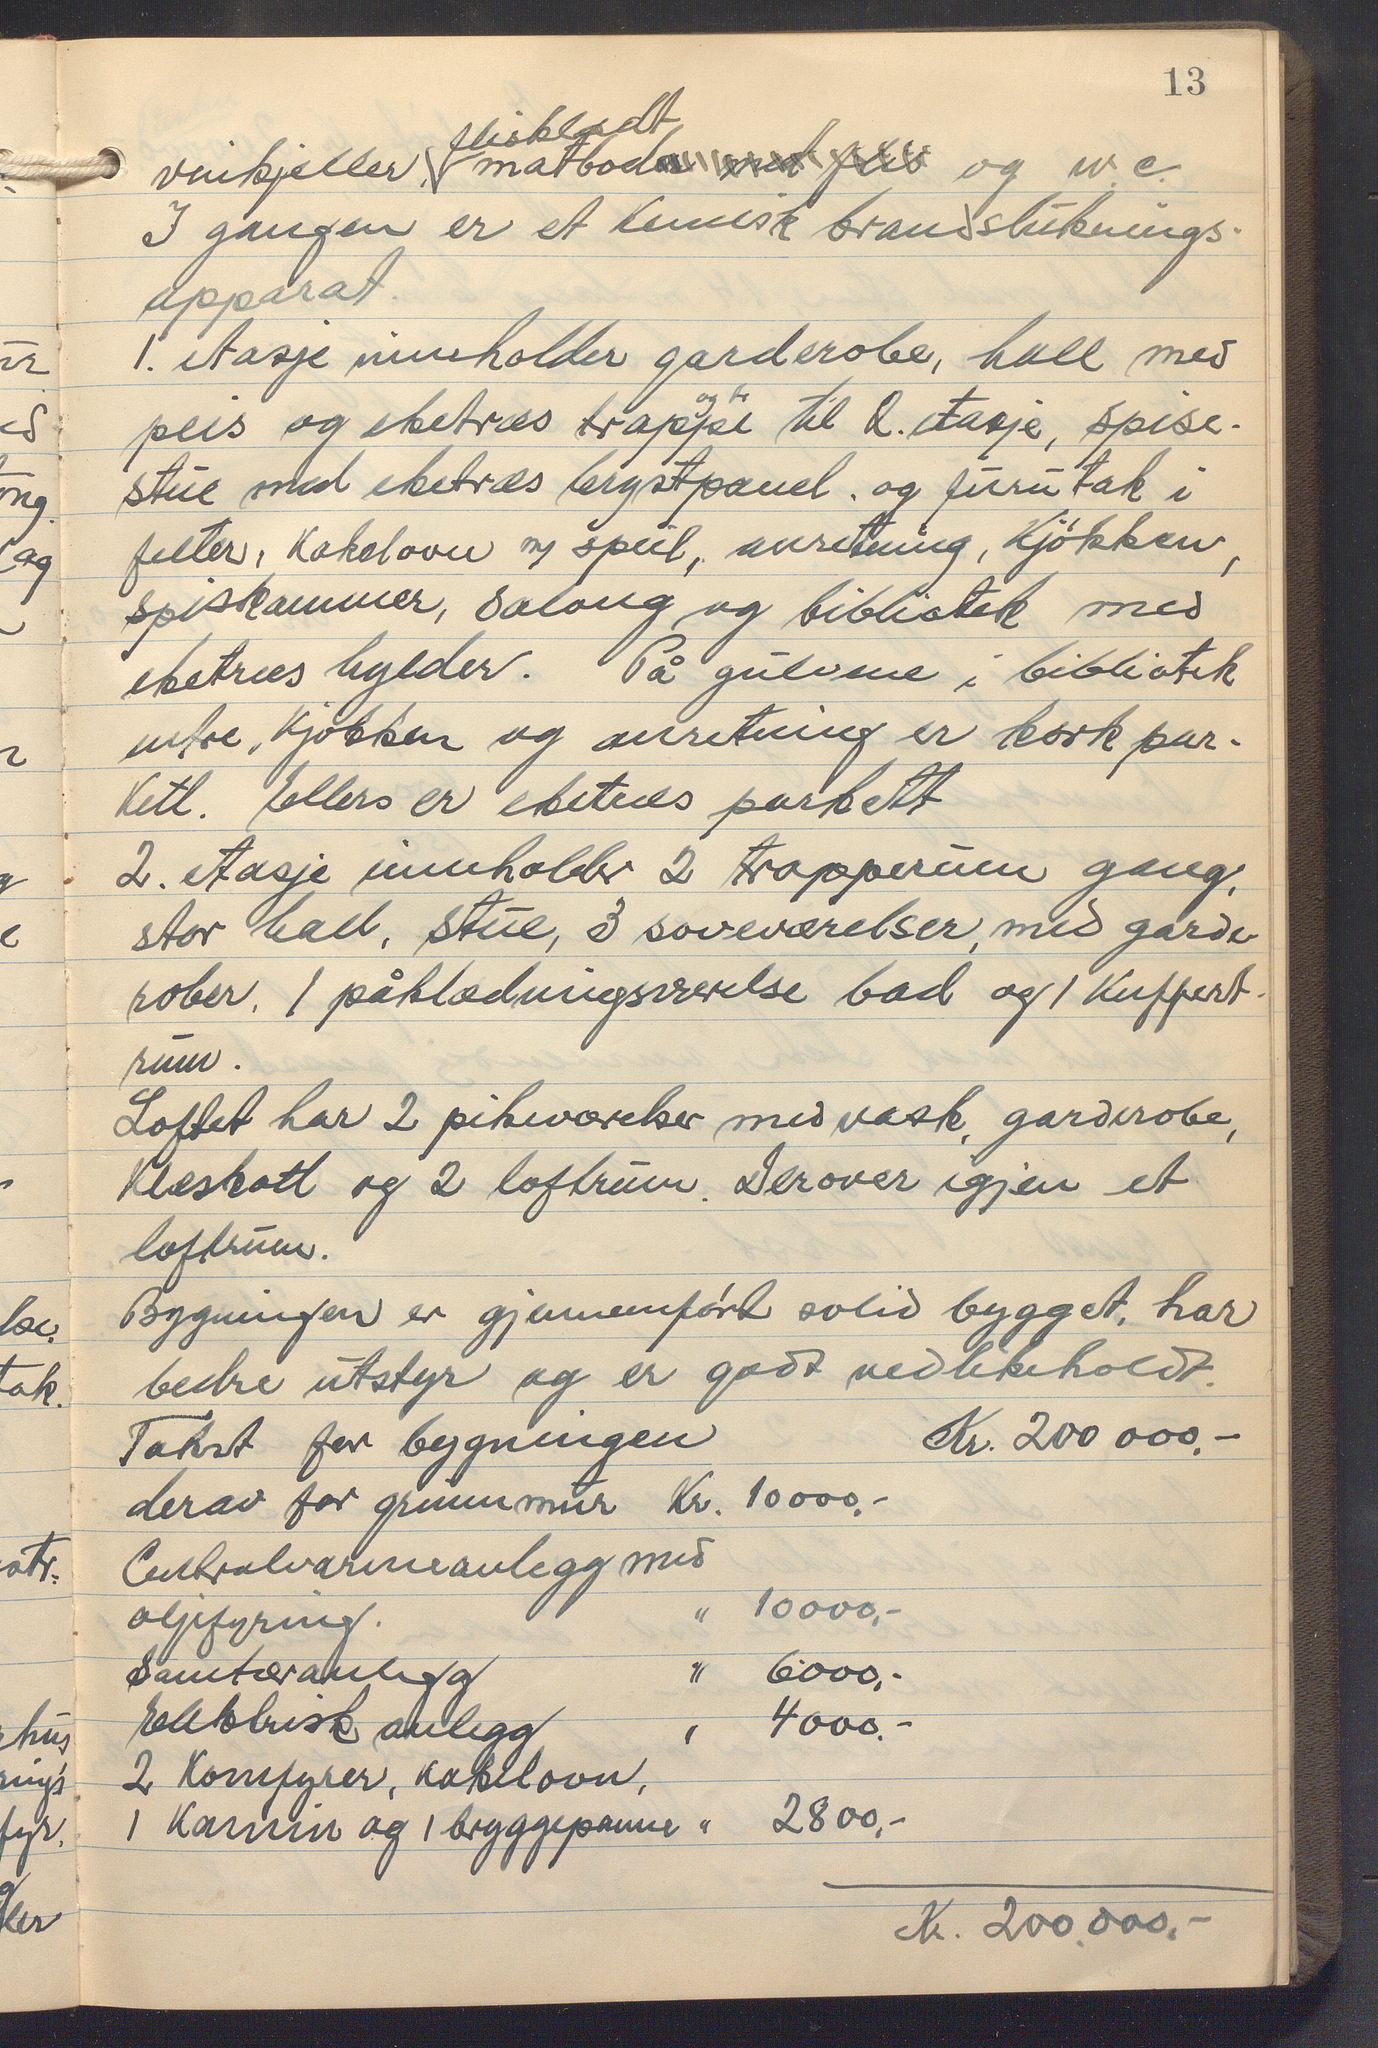 13
vinkjeller, flisklædt matbod med flis og w.c.
I gangen er et kemisk brandsluknings-
apparat.
1. etasje inneholder garderobe, hall med
peis og eketræs trappe til 2. etasje, spise-
stue med eketræs brystpanel. og furutak i
felter, Kakelovn m/ speil, anretning, Kjökken,
spiskammer, salong og bibliotek med
eketræs hylder. På gulvene i bibliotek
entre, Kjøkken og anretning er kork par-
kett. Ellers er eketræs parkett
2. etasje inneholder 2 trapperum gang,
stor hall, stue, 3 soveværelser, med garde
rober, 1 påklædningsværelse bad og 1 Kuffert-
rum.
Loftet har 2 pikeværelser med vask, garderobe,
Kleskott og 2 loftrum. Derover igjen et
loftrum.
Bygningen er gjennemført solid bygget, har
bedre utstyr og er godt vedlikeholdt.
Takst for bygningen Kr. 200 000.-
derav for grunnmur Kr. 10000.-
Centralvarmeanlegg med
oljefyring. " 10000,-
Sanitæranlegg " 6000,-
Elektrisk anlegg " 4000.-
2 Komfyrer, kakelovn,
1 Kamin og 1 bryggepanne " 2800,-
Kr. 200.000,-